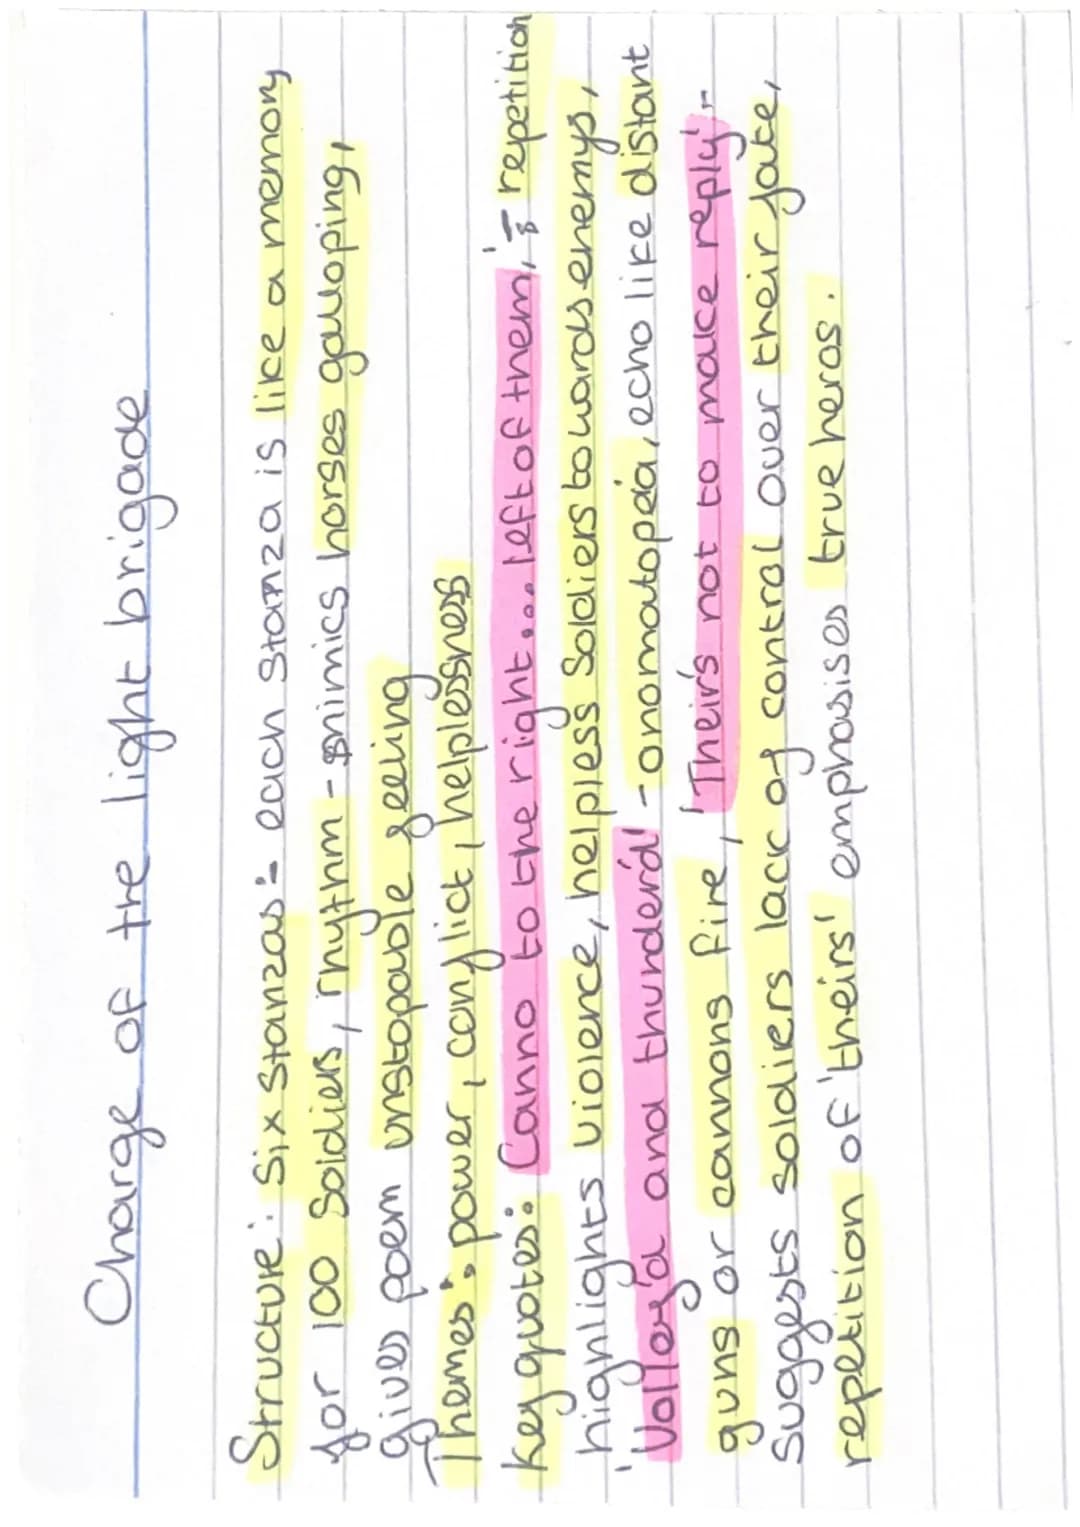 Charge of the light brigade
Structure: Six stanzas - each stanza is like a memory
for 100 soldiers, rhythm - mimics horses galloping,
gives poem unstopable feeling
Themes: power, conflict, helplessness
Key quotes: 'Canno to the right... left of them,' - repetition
highlights violence, helpless soldiers towards enemys,
'Volley'd and thunder'd' - onomatopeia, echo like distant
guns or cannons fire, 'Their's not to make reply' -
Suggests soldiers lack of control over their fate,
repetition of 'theirs' emphasises true heros.